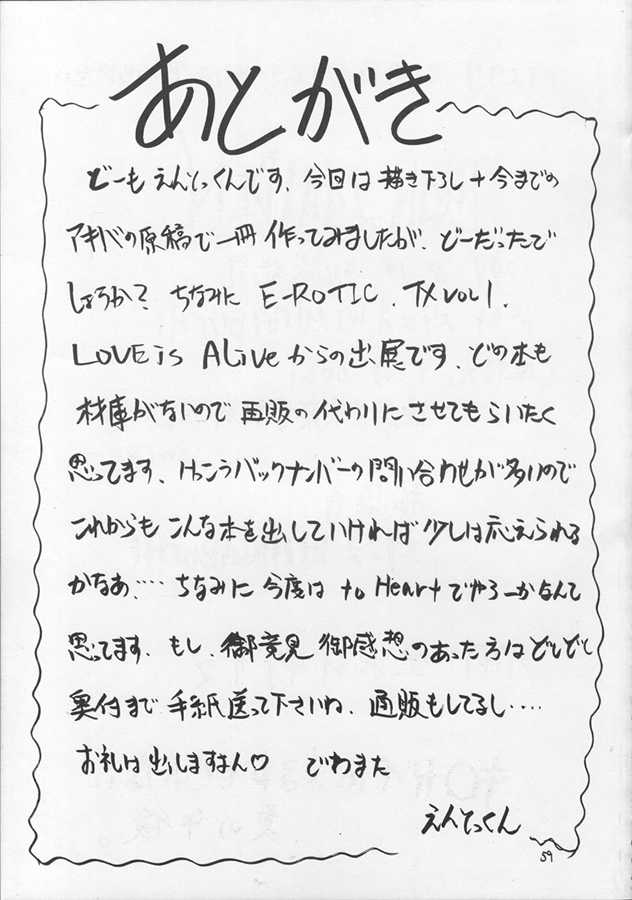 あとがき
どーも えんとっくんです、今回は描き下ろし+今までの
アキバの原稿で一冊作ってみましたが、どーだったで
しょうか? ちなみに E-ROTIC、TX VOL1、
LOVE is ALive からの出展です、どの本も
在庫がないので再販の代わりにさせてもらいたく
思ってます、けっこうバックナンバーの問い合わせが多いので
これからもこんな本を出していければ少しは応えられる
かなあ、… ちなみに今度は to Heart でやろーかなんて
思ってます、もし、御意見御感想のあった方はどしどし
奥付まで手紙送って下さいね、通販もしてるし‥‥
お礼は出しますよん♡ でわまた
えんとっくん
59